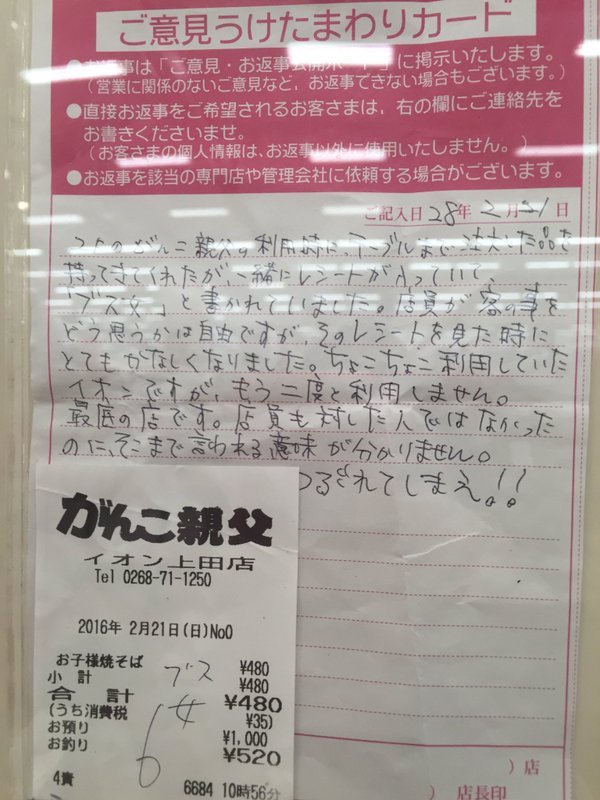 ご意見うけたまわりカード
●お返事は「ご意見・お返事公開ボード」に掲示いたします。
(営業に関係のないご意見など、お返事できない場合もございます。)
●直接お返事をご希望されるお客さまは、右の欄にご連絡先を
お書きくださいませ。
(お客さまの個人情報は、お返事以外に使用いたしません。)
●お返事を該当の専門店や管理会社に依頼する場合がございます。
ご記入日 28年 2月 21日
がんこ親父の利用時に、テーブルまで注文した品を
持ってきてくれたが、一緒にレシートが入っていて、
「ブス女」と書かれていました。店員が客の事を
どう思うかは自由ですが、そのレシートを見た時に
とてもかなしくなりました。ちょこちょこ利用していた
イオンですが、もう二度と利用しません。
最低の店です。店員も対した人ではなかった
のに、そこまで言われる意味が分かりません。
つぶれてしまえ!!
がんこ親父
イオン上田店
Tel 0268-71-1250
2016年 2月21日(日)No0
お子様焼そば ¥480
小 計 ¥480
合 計 ¥480
(うち消費税 ¥35)
お預り ¥1,000
お釣り ¥520
ブス
女
6
4責 6684 10時56分
)店
)店長印